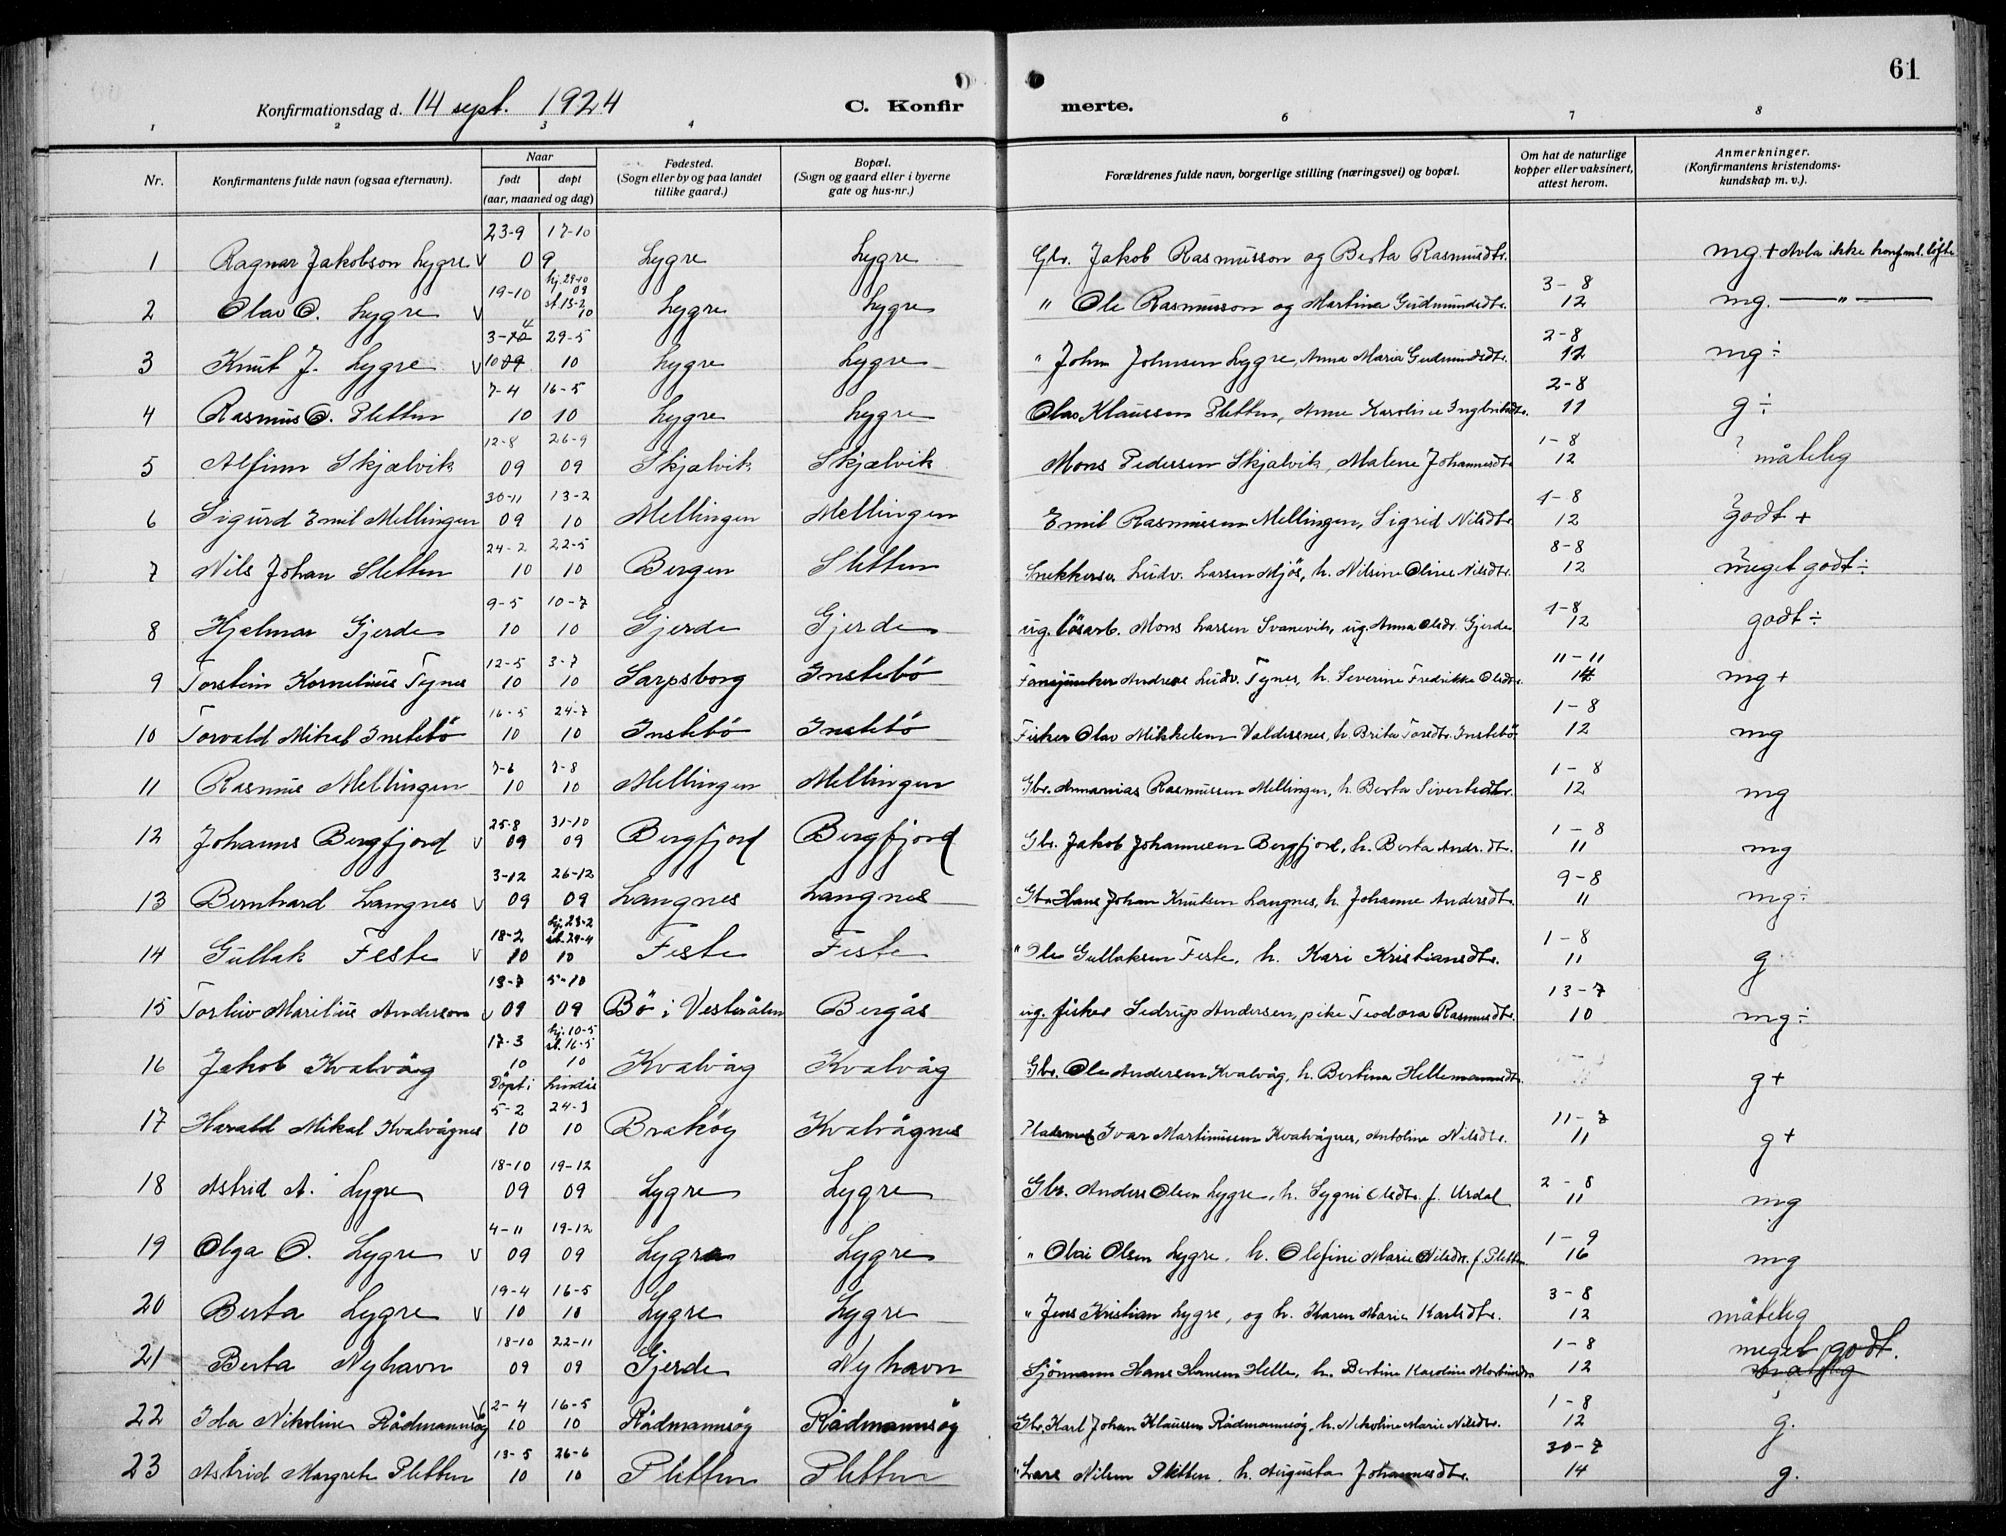 61
Konfirmationsdag d. 14 sept. 1924 C. Konfirmerte.
1 2 3 4 6 7 8
Nr. Konfirmantens fulde navn (ogsaa efternavn). Naar født døpt (aar, maaned og dag) Fødested. (Sogn eller by og paa landet tillike gaard.) Bopæl. (Sogn og gaard eller i byerne gate og hus-nr.) Forældrenes fulde navn, borgerlige stilling (næringsvei) og bopæl. Om hat de naturlige kopper eller vaksinert, attest herom. Anmerkninger. (Konfirmantens kristendomskundskap m. v.).
1 Ragnar Jakobson Lygre v 23-9 17-10 09 Lygre Lygre Gbr. Jakob Rasmusson og Berta Rasmusdtr. mg + Avla ikke konfml. löfte
2 Olav O. Lygre v 19-10 hj. 29-10 09 st. 13-2 10 Lygre Lygre " Ole Rasmusson og Martina Gudmundsdtr. 3-8 12 mg. — " —
3 Knut J. Lygre v 3-4 10 29-5 10 Lygre Lygre " John Johnsen Lygre, Anna Maria Gudmundsdtr. 2-8 12 mg ÷
4 Rasmus O. Sletten 7-4 10 16-5 10 Lygre Lygre Olav Klaussen Sletten, Anne Karoline 2-8 11 g ÷
5 Alfinn Skjælvik 12-8 09 26-9 09 Skjælvik Skjælvik Mons Pedersen Skjælvik, Malene Johannesdtr. 1-8 12 ? måtelig
6 Sigurd Emil Mellingen 30-11 09 13-2 10 Mellingen Mellingen Emil Rasmussen Mellingen, Sigrid Nilsdtr. 1-8 12 godt +
7 Nils Johan Sletten 24-2 10 22-5 10 Bergen Sletten Snekkersv. Ludv. Larsen Mjös, h. Nilsine Oline Nilsdtr. 8-8 12 meget godt ÷
8 Hjalmar Gjerde 9-5 10 10-7 10 Gjerde Gjerde ug. lösarb. Mons Larsen Svanevik, ug. Anna Olsdr. Gjerde 1-8 12 godt ÷
9 Torstein Kornelius Tynes 12-5 10 3-7 10 Sarpsborg Instebö Andreas Ludv. Tynes, h. Severine Fredrikke Olsdtr. 11-11 14 mg +
10 Torvald Mikal Instebö 16-5 10 24-7 10 Instebö Instebö Fisker Olav Mikkelsen Valdersnes, h. Brita Toredtr. Instebö 1-8 12 mg
11 Rasmus Mellingen 7-6 10 7-8 10 Mellingen Mellingen Gbr. Annanias Rasmussen Mellingen, h. Berta Sivertsdtr. 1-8 12 mg
12 Johannes Bergfjord v 25-8 09 31-10 09 Bergfjord Bergfjord Gbr. Jakob Johannesen Bergfjord, h. Berta Andr.dtr. 1-8 11 mg
13 Bernhard Langnes v 3-12 09 26-12 09 Langnes Langnes Gbr. Hans Johan Knutsen Langnes, h. Johanne Andersdtr. 9-8 11 mg ÷
14 Gullak Feste v 18-2 10 hj. 23-2 st. 24-4 10 Feste Feste " Ole Gullaksen Feste, h. Kari Kristiansdtr. 1-8 11 g
15 Torleiv Marelius Anderson v 13-7 09 5-10 09 Bö i Vesterålen Bergås ug. fisker Sedrup Andersen, pike Teodora Rasmusdtr. 13-7 10 mg ÷
16 Jakob Kvalvåg 17-3 10 hj. 10-5 st. 16-5 10 Kvalvåg Kvalvåg Gbr. Ole Andersen Kvalvåg, h. Bertina Hellemannsdtr. g +
Döpt i
17 Harald Mikal Kvalvågnes 5-2 10 24-3 10 Braköy Kvalvågnes Ivar Martinussen Kvalvågnes, Antoline Nilsdtr. 11-7 11 g +
18 Astrid A. Lygre 18-10 09 19-12 09 Lygre Lygre Gbr. Anders Olsen Lygre, h. Sygni Olsdtr. f. Urdal 2-8 11 mg
19 Olga O. Lygre v 4-11 09 19-12 09 Lygre Lygre " Olai Olsen Lygre, h. Olefine Marie Nilsdtr. f. Sletten 1-9 16 mg
20 Berta Lygre v 19-4 10 16-5 10 Lygre Lygre " Jens Kristian Lygre, og h. Karen Marie Karlsdtr. 3-8 12 måtelig
21 Berta Nyhavn 18-10 09 22-11 09 Gjerde Nyhavn Sjömann Hans Hansen Helle, h. Bertine Karoline 1-8 12 meget godt.
22 Ida Nikoline Rådmannsöy v 2-4 10 16-5 10 Rådmannsöy Rådmannsöy Gbr. Karl Johan Klaussen Rådmannsöy, h. Nikoline Marie Nilsdtr. 1-8 12 g.
23 Astrid Margrete Sletten 13-5 10 26-6 10 Sletten Sletten " Lars Nilsen Sletten, h. Augusta Johannesdtr. 30-7 14 g.